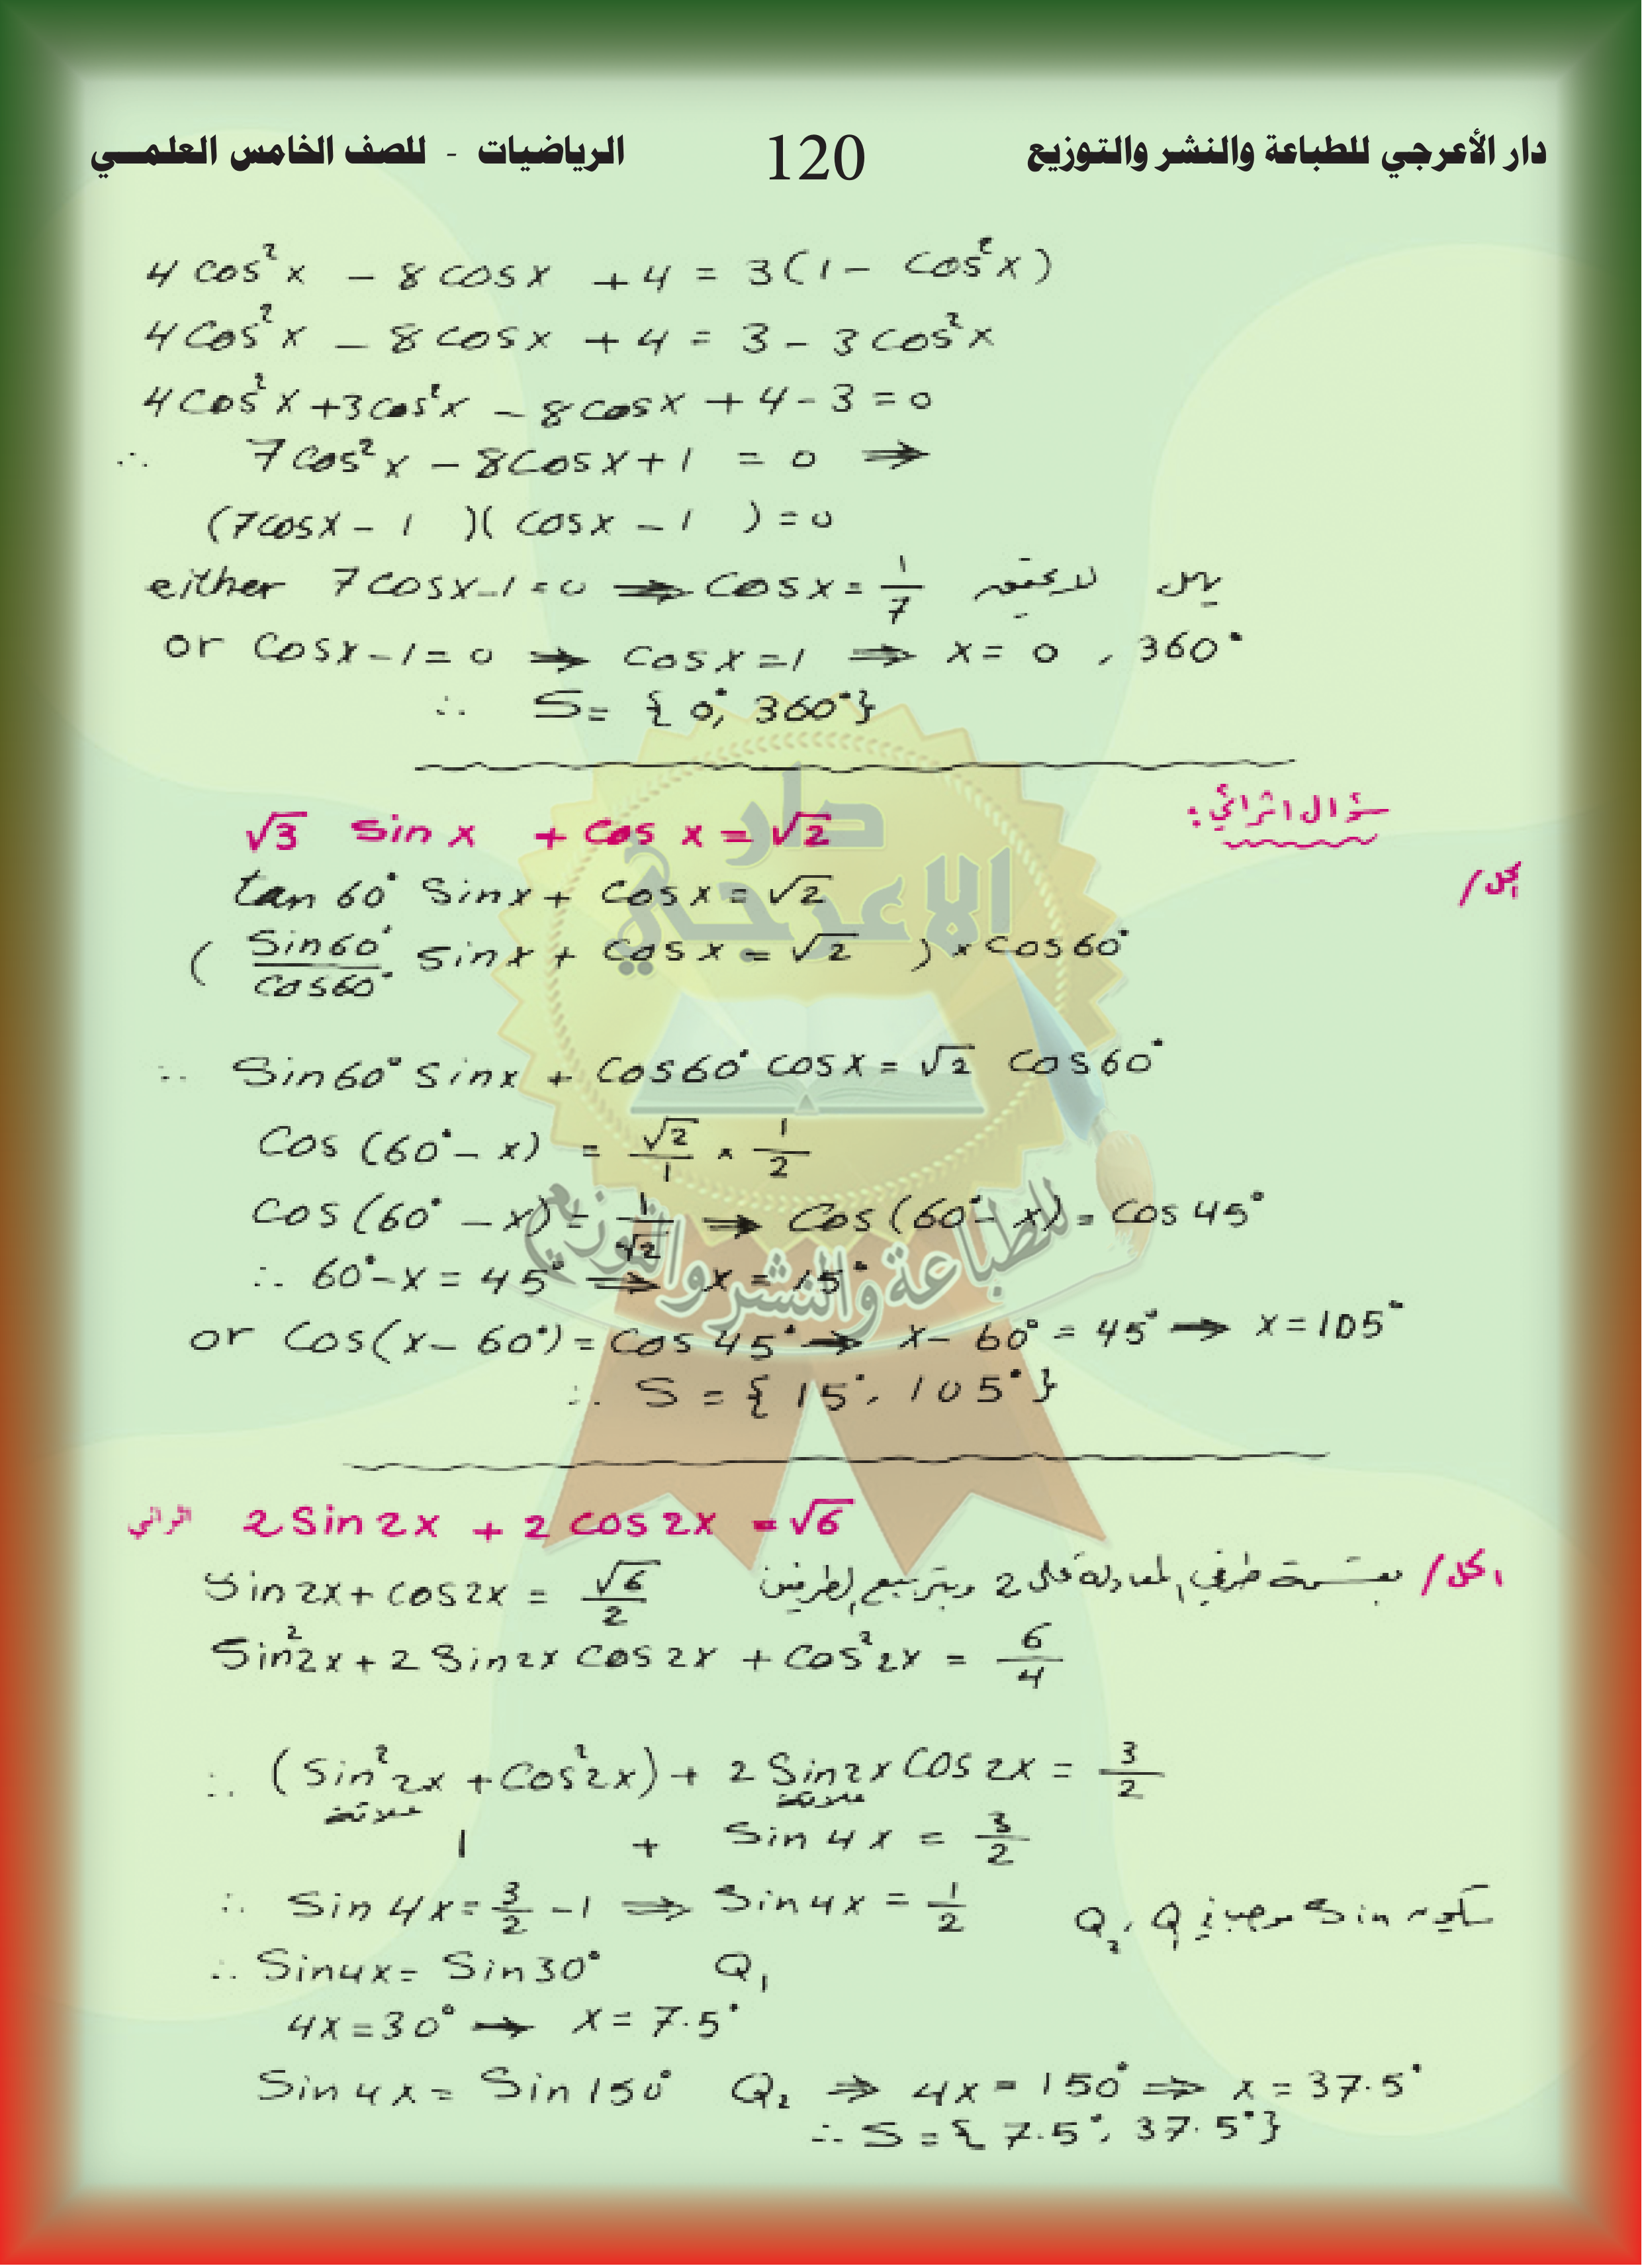 دار الأعرجي للطباعة والنشر والتوزيع 120 الرياضيات - للصف الخامس العلمي
4 cos²x - 8 cosx + 4 = 3(1 - cos²x)
4 cos²x - 8 cosx + 4 = 3 - 3 cos²x
4 cos²x + 3 cos²x - 8 cosx + 4 - 3 = 0
∴ 7 cos²x - 8 cosx + 1 = 0 ⇒
(7cosx - 1 )( cosx - 1 ) = 0
either 7 cosx - 1 = 0 ⇒ cosx = 1/7 لا يحقق
or cosx - 1 = 0 ⇒ cosx = 1 ⇒ x = 0 , 360°
∴ S = { 0°, 360° }
سؤال اثرائي :
√3 sin x + cos x = √2
الحل /
tan 60° sinx + cosx = √2
( sin60°/cos60° sinx + cosx = √2 ) × cos60°
∴ sin60° sinx + cos60° cosx = √2 cos60°
cos (60° - x) = √2/1 × 1/2
cos (60° - x) = 1/√2 ⇒ cos(60° - x) = cos 45°
∴ 60° - x = 45° ⇒ x = 15°
or cos(x - 60°) = cos 45° → x - 60° = 45° → x = 105°
∴ S = { 15°, 105° }
2 sin 2x + 2 cos 2x = √6 اثرائي
الحل / بقسمة طرفي المعادلة على 2 وبتربيع الطرفين
sin 2x + cos 2x = √6/2
sin²2x + 2 sin2x cos 2x + cos²2x = 6/4
∴ (sin²2x + cos²2x) + 2 sin2x cos 2x = 3/2
علاقة علاقة
1 + sin 4x = 3/2
∴ sin 4x = 3/2 - 1 ⇒ sin4x = 1/2 sin موجب في Q₁ , Q₂
∴ sin4x = sin30° Q₁
4x = 30° → x = 7.5°
sin 4x = sin 150° Q₂ ⇒ 4x = 150° ⇒ x = 37.5°
∴ S = { 7.5°, 37.5° }
دار
الاعرجي
للطباعة والنشر والتوزيع